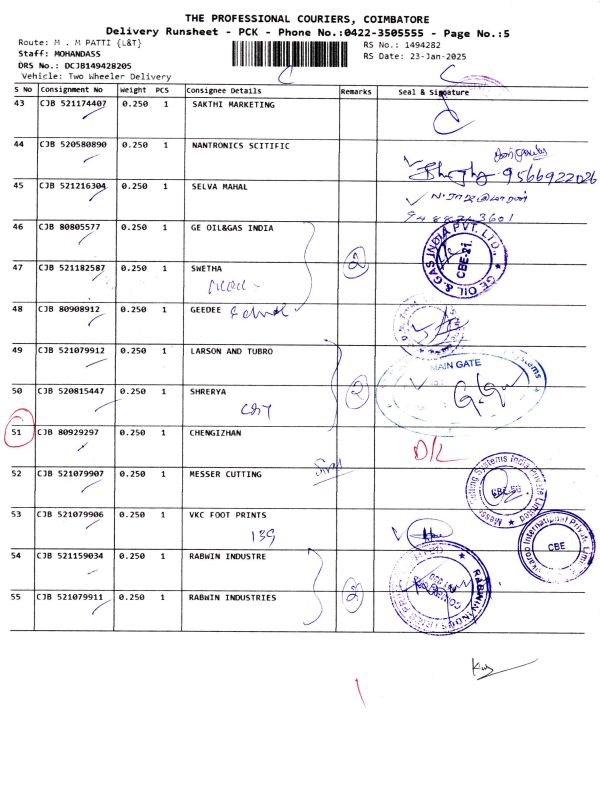 THE PROFESSIONAL COURIERS, COIMBATORE
Delivery Runsheet - PCK - Phone No.:0422-3505555 - Page No.:5
Route: M . M PATTI {L&T}
RS No.: 1494282
Staff: MOHANDASS
RS Date: 23-Jan-2025
DRS No.: DCJB149428205
Vehicle: Two Wheeler Delivery
S No Consignment No Weight PCS Consignee Details Remarks Seal & Signature
43 CJB 521174407 0.250 1 SAKTHI MARKETING
44 CJB 520580890 0.250 1 NANTRONICS SCITIFIC
9566922026
45 CJB 521216304 0.250 1 SELVA MAHAL
46 CJB 80805577 0.250 1 GE OIL&GAS INDIA
GE OIL & GAS INDIA PVT. LTD.,
CBE-21.
2
47 CJB 521182587 0.250 1 SWETHA
48 CJB 80908912 0.250 1 GEEDEE
49 CJB 521079912 0.250 1 LARSON AND TUBRO
MAIN GATE
50 CJB 520815447 0.250 1 SHRERYA
2
51 CJB 80929297 0.250 1 CHENGIZHAN
D/L
52 CJB 521079907 0.250 1 MESSER CUTTING
Messer Cutting Systems India Private Limited
53 CJB 521079906 0.250 1 VKC FOOT PRINTS
139
CBE
54 CJB 521159034 0.250 1 RABWIN INDUSTRE
55 CJB 521079911 0.250 1 RABWIN INDUSTRIES
2